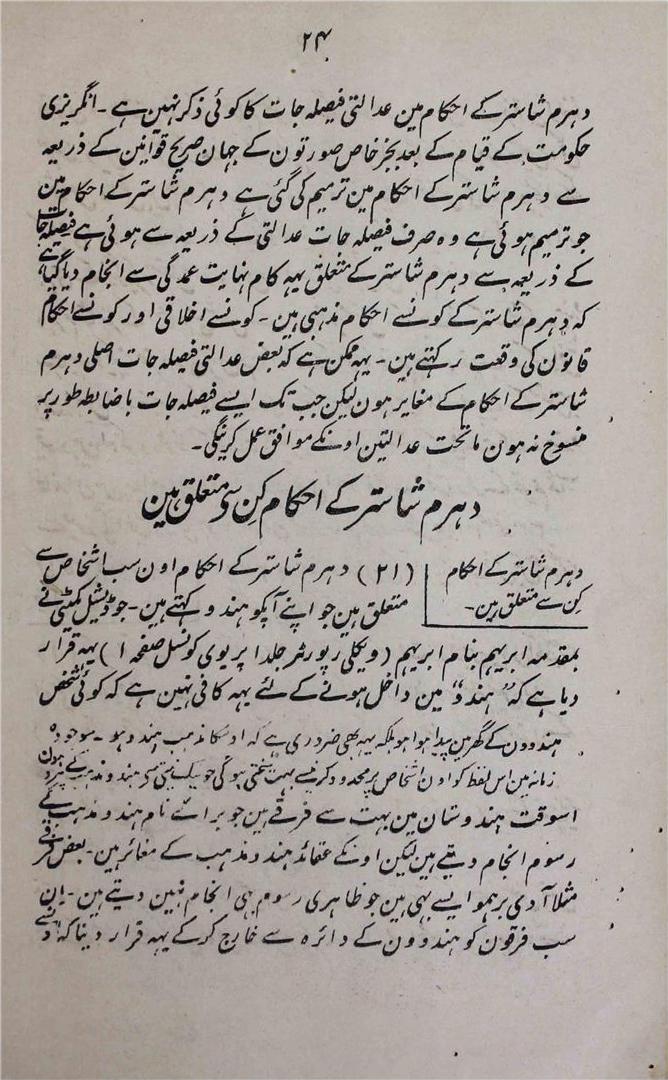 ۲۴
دہرم شاستر کے احکام مین عدالتی فیصلہ جات کا کوئی ذکر نہین ہے ۔ انگریزی
حکومت کے قیام کے بعد بجز خاص صورتون کے جہان صریح قوانین کے ذریعہ
سے دہرم شاستر کے احکام مین ترمیم کی گئی ہے دہرم شاستر کے احکام مین
جو ترمیم ہوئی ہے وہ صرف فیصلہ جات عدالتی کے ذریعہ سے ہوئی ہے فیصلہ جات
کے ذریعہ سے دہرم شاستر کے متعلق یہہ کام نہایت عمدگی سے انجام دیا گیا ہے
کہ دہرم شاستر کے کونسے احکام مذہبی ہین ۔ کونسے اخلاقی اور کونسے احکام
قانون کی وقعت رکہتے ہین ۔ یہہ ممکن ہے کہ بعض عدالتی فیصلہ جات اصلی دہرم
شاستر کے احکام کے مغایر ہون لیکن جب تک ایسے فیصلہ جات باضابطہ طور پر
منسوخ نہ ہون ماتحت عدالتین اونکے موافق عمل کرینگی ۔
دہرم شاستر کے احکام کن سے متعلق ہین
دہرم شاستر کے احکام
کن سے متعلق ہین ۔
(۲۱) دہرم شاستر کے احکام اون سب اشخاص سے
متعلق ہین جو اپنے آپکو ہندو کہتے ہین ۔ جوڈیشل کمیٹی نے
بمقدمہ ابریہم بنام ابریہم (ویکلی رپورٹر جلد ا پریوی کونسل صفحہ ۱) یہہ قرار
دیا ہے کہ "ہندو" مین داخل ہونے کے لئے یہہ کافی نہین ہے کہ کوئی شخص
ہندوون کے گھر مین پیدا ہوا ہو بلکہ یہہ بھی ضروری ہے کہ اوسکا مذہب ہندو ہو ۔ موجودہ
زمانہ مین اس لفظ کو اون اشخاص پر محدود کرنیسے بہت سختی ہوگی جو نیک نیتی سے ہندو مذہب کے پیرو ہون
اسوقت ہندوستان مین بہت سے فرقے ہین جو برائے نام ہندو مذہب کے
رسوم انجام دیتے ہین لیکن اونکے عقائد ہندو مذہب کے مغائر ہین ۔ بعض فرقے
مثلا آدی برہمو ایسے بہی ہین جو ظاہری رسوم بہی انجام نہین دیتے ہین ۔ ان
سب فرقون کو ہندوون کے دائرہ سے خارج کر کے یہہ قرار دینا کہ